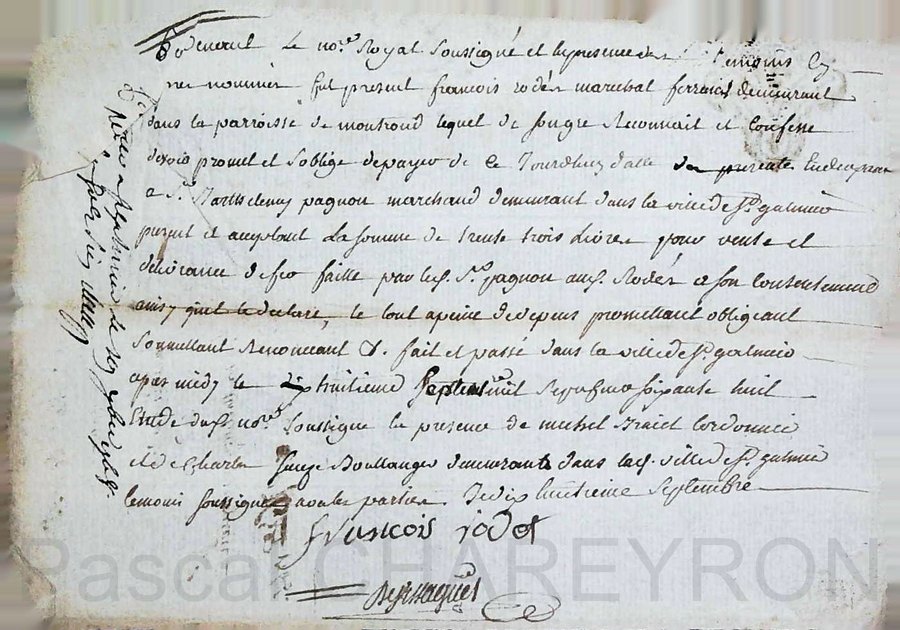 Pardevant le no.re Royal soussigné et en presence des temoins cy
apres nommés fut present francois rodés marechal ferrant demeurant
dans la parroisse de montrond lequel de son gre Reconnait et confesse
devoir promet et s'oblige de payer de ce Jourdhuy
a Sr. Barthelemy pagnon marchand demeurant dans la ville de St. galmier
present et acceptant La somme de trente trois Livres pour vente et
delivrance de fer faitte par led. Sr. pagnon aud. Rodés a son contentement
ainsy qu'il le declare, le tout a peine de depens promettant obligeant
Soumettant Renonceant &. fait et passé dans la ville de St. galmier
apres midy le dixhuitieme septembre mil sept cent soixante huit
Etude dud. no.re soussigne en presence de michel cordonnier
et de charles Boullanger demeurants dans lad. ville de St. galmier
temoins soussignes avec les parties Le dix huitieme septembre
francois rodet
Pascal CHAREYRON